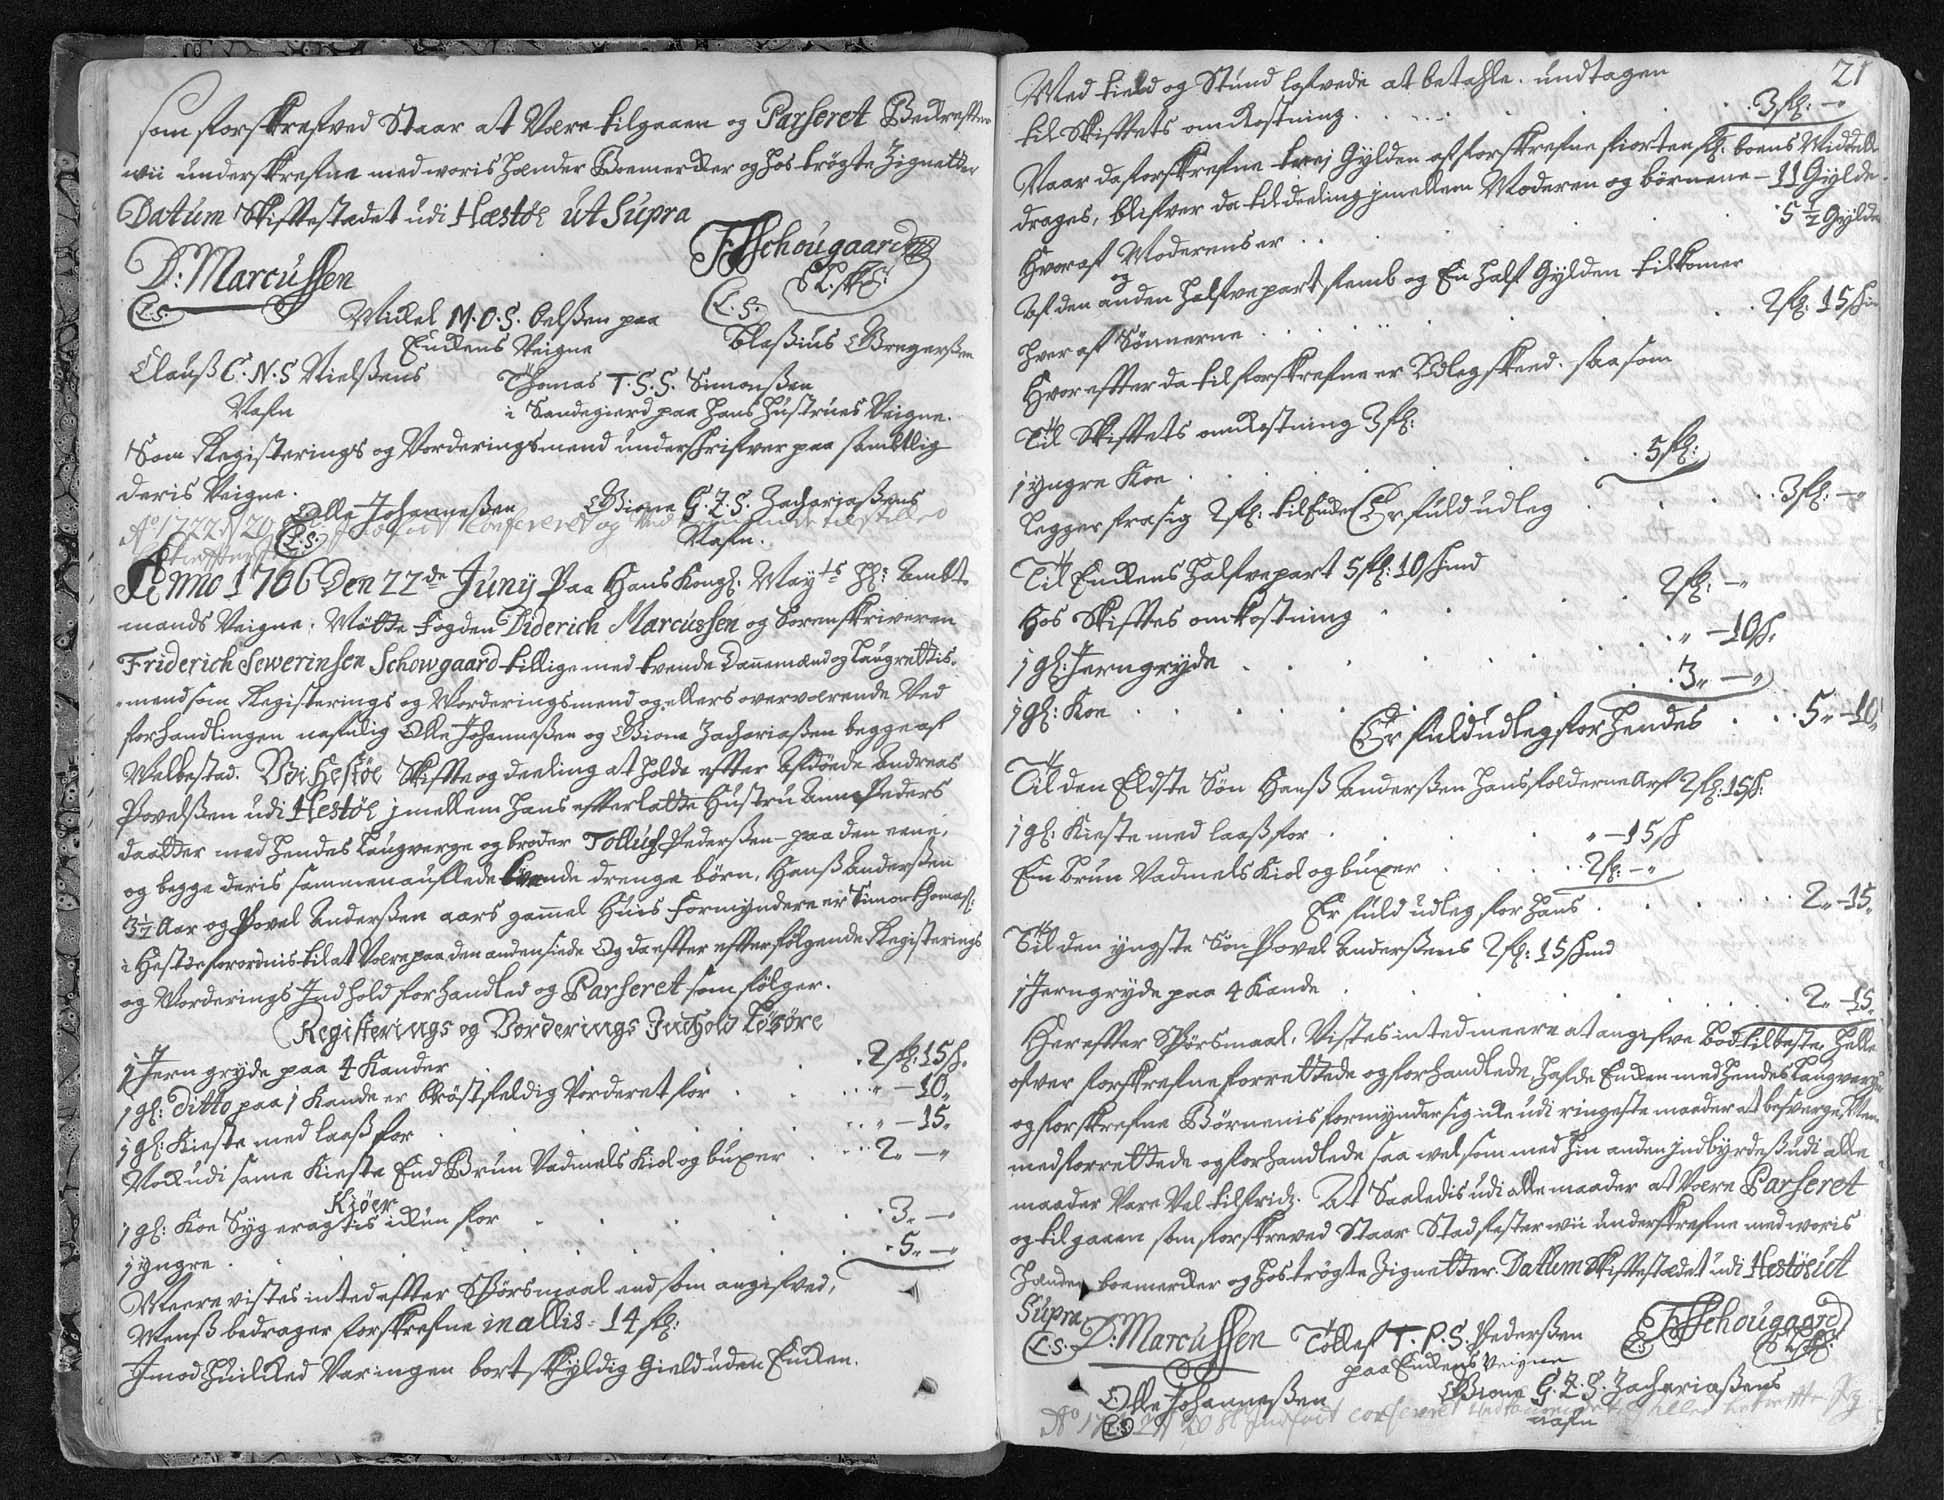 som forskrefved Staar at Være tilgaaen og Passeret Bekrefter
wii underskrefne med woris Hænder Boemerker og hos trögte Zignetter
Datum Skiftestædet udi Hæstöe ut Supra
D: Marcussen
FSSchougaard
L.S.
L.S.
Mickel M.O.S. Oelßen paa
Enckens Veigne
Blaßius Gregerßen
Clauß C.N.S Nielßens
Nafn
Thomas T.S.S. Simonßen
i Sandegierd paa Hans Hustrues Veigne.
Som Registerings og Vorderingsmend underschrifver paa samtlig
deris Veigne.
Olle Johanneßen
Giöne G.Z.S. Zachariaßens
Nafn.
L.S.
Ao 1722
Anno 1706 Den 22de Juny Paa Hans Kongl: Mayts Hr: Ambt
mands Veigne, Mötte fogden Diderich Marcussen og Sorenskriveren
Friderich Sewerinsen Schowgaard tillige med tvende Dannemænd og Laugrettis
mend som Registerings og Vorderingsmend og ellers overværende Ved
forhandlingen nafnlig Olle Johanneßen og Giöne Zachariaßen begge af
Welbestad. Udi Hestöe Skifte og deeling at holde effter Afdöede Andreas
Povelßen udi Hestöe jmellem hans efterlatte Hustru Anne Peders
daatter med hendes Laugverge og broder Tolluf Pederßen paa den eene,
og begge deris sammen auflede tvende drenge börn, Hanß Anderßen
3½ Aar og Povel Anderßen aars gammel Huis Formyndere er Simon Thomasß:
i Hestöe forordnis til at Være paa den anden siede Og da effter effterfölgende Registerings
og Vorderings Indhold forhandled og Passeret som fölger.
Registerings og Vorderings Indhold Lösöre
1 Jern gryde paa 4 Kander . 2 fl: 15 s.
1 gl: ditto paa 1 Kande er bröstfeldig Vorderet for . " - 10.
1 gl: Kieste med laaß for . " - 15.
Nock udi same Kieste End Brun Vadmels Kiol og buxer . 2. - "
Kiöer
1 gl: Koe Syg eragtis ickun for . 3. - "
1 yngre . 5. - "
Meere vistes inted effter Spörsmaal end som angifved,
Menß bedrager forskrefne in allis - 14 fl:
Imod huilcked Var ingen bort skyldig Gield uden Encken.
21
Med tied og Stund lofvede at betahle. undtagen
til Skifftets omkostning . 3 fl: - "
Naar da forskrefne trej Gylden af forskrefne fiorten fl: boens Middell
drages, blifver da til deeling jmellem Moderen og börnene - 11 Gylde.
Hvoraf Moderens er . 5 ½ Gylde
og
Af den anden halfvepart femb og En half Gylden tilkomer
hver af Sönnerne . 2 fl: 15 s
Hvoreffter da til forskrefne er Udleg skeed. saasom
Til Skifftets omkostning 3 fl:
1 yngre Koe . 5 fl:
legger fra sig 2 fl: til Encken Er fuld udleg . 3 fl: - "
Til Enckens halfvepart 5 fl: 10 s
Hos Skifftes omkostning . 2 fl: - "
1 gl: Jerngryde . " - 10 s.
1 gl: Koe . 3. - "
Er fuld udleg for hendes . 5. - 10.
Til den Eldste Sön Hanß Anderßen hans fæderne Arf 2 fl: 15 s:
1 gl: Kieste med laaß for . " - 15 s
En brun Vadmels Kiol og buxer . 2 fl: - "
Er fuld udleg for Hans . 2. - 15.
Til den yngste Sön Povel Anderßens 2 fl: 15 s
1 Jerngryde paa 4 Kande . 2. - 15.
Hereffter Spörsmaal, Vistes inted meere at angifve boed til beste, Helle
ofver forskrefne forrettede og forhandlede, hafde Encken med hendes Laugverge
og forskrefne Börnenis formynder sig icke udi ringeste maader at besverge, Men
med forrettede og forhandlede saa vel som med hin anden indbyrdeß udi alle
maader Vare Vel tilfridz. At Saaledis udi alle maader at Være Passeret
og tilgaaen som forskreved Staar Stadfester wii underskrefne med woris
Hænder boemerker og hos trögte Zignetter. Datum Skiftestædet udi Hestöe ut
Supra.
L.S. D: Marcussen
Tollef T.P.S. Pederßen
paa Enckens Veigne
L.S. FSSchougaard
Olle Johanneßen
L.S.
Giöne G.Z.S. Zachariaßens
nafn